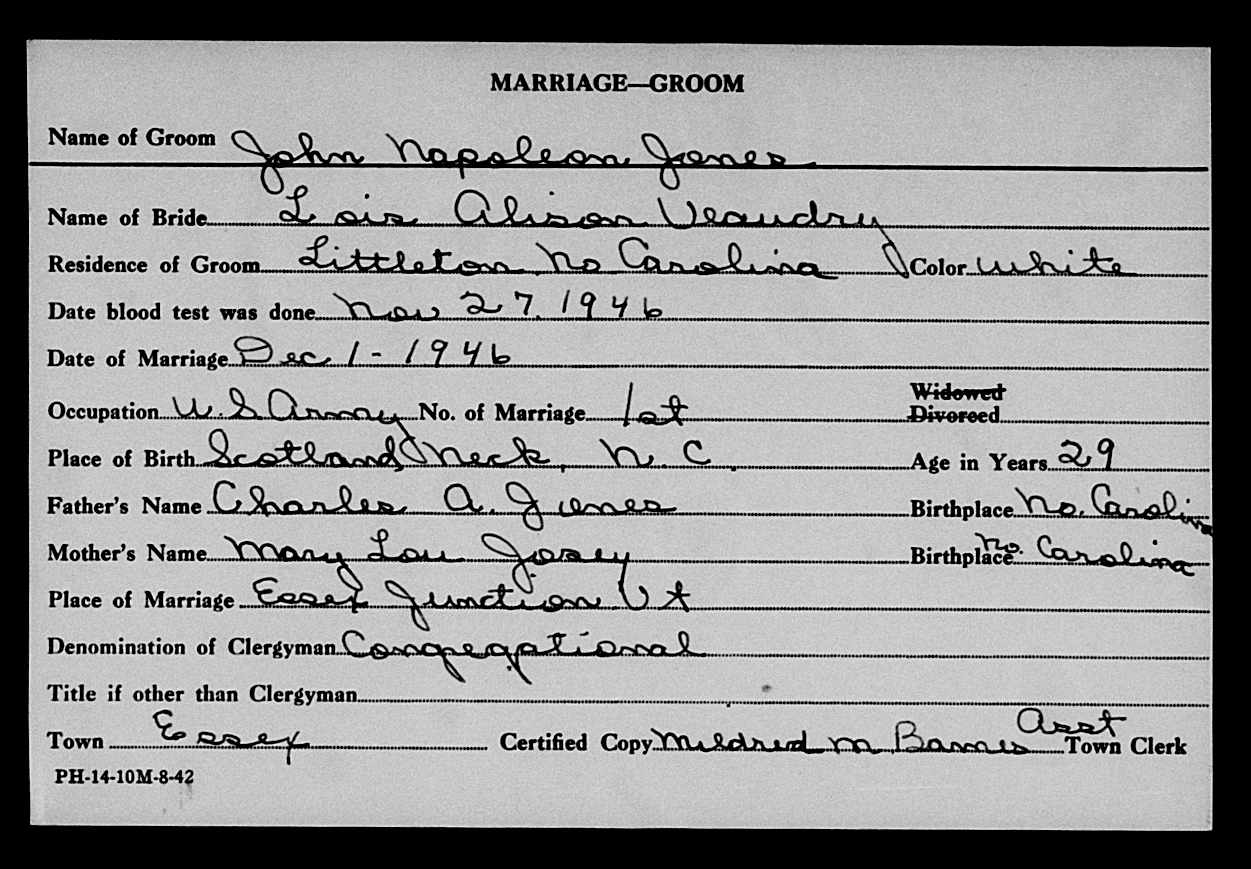 MARRIAGE—GROOM
Name of Groom John Napoleon Jones
Name of Bride Lois Alison Veaudry
Residence of Groom Littleton No Carolina Color White
Date blood test was done Nov 27, 1946
Date of Marriage Dec 1 - 1946
Widowed
Occupation U.S Army No. of Marriage 1st Divorced
Place of Birth Scotland Neck, N. C. Age in Years 29
Father's Name Charles A. Jones Birthplace No. Carolina
Mother's Name Mary Lou Josey Birthplace No. Carolina
Place of Marriage Essex Junction Vt
Denomination of Clergyman Congregational
Title if other than Clergyman
Town Essex Certified Copy Mildred M Barnes Asst Town Clerk
PH-14-10M-8-42